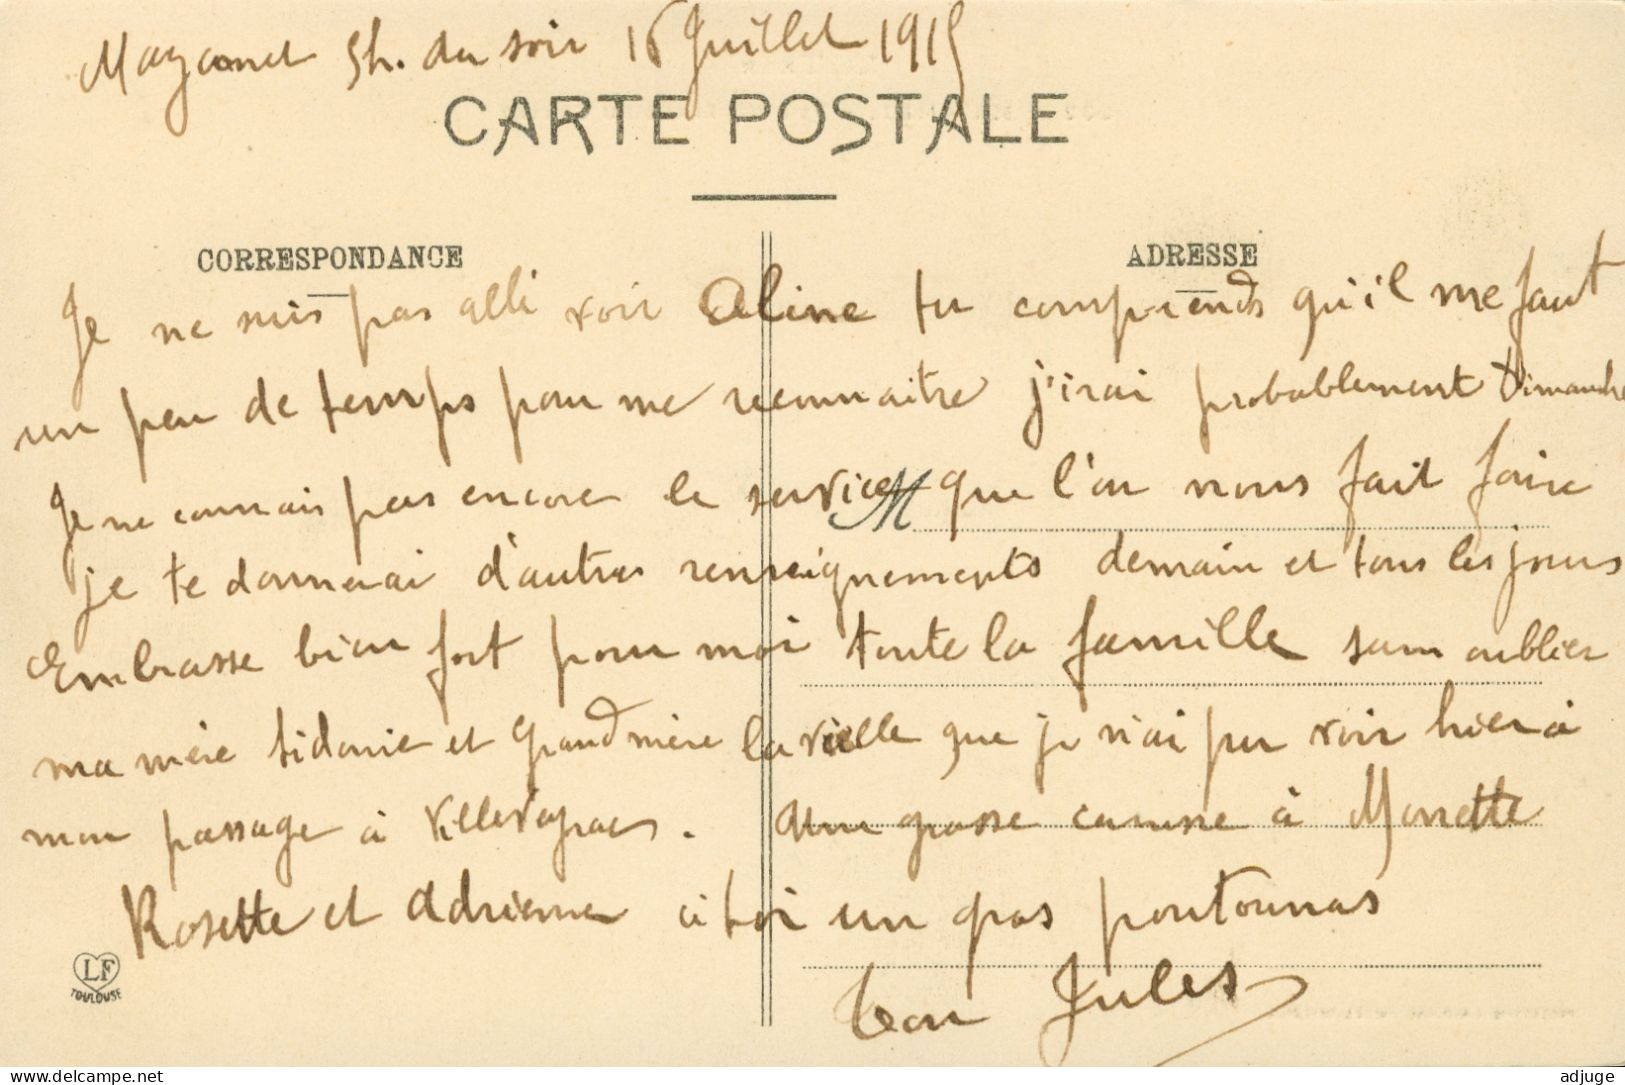 Mazamet 5h. du soir 16 Juillet 1915
CARTE POSTALE
CORRESPONDANCE
ADRESSE
Je ne suis pas allé voir Aline tu comprends qu'il me faut
un peu de temps pour me reconnaitre j'irai probablement Dimanche
Je ne connais pas encore le service que l'on nous fait faire
M
je te donnerai d'autres renseignements demain et tous les jours
Embrasse bien fort pour moi toute la famille sans oublier
ma mère Sidonie et Grand mère la vieille que je n'ai pu voir hier à
mon passage à . Une grosse caresse à Monette
Rosette et Adrienne à toi un gros poutounas
ton Jules
LF
TOULOUSE
www.delcampe.net
adjuge